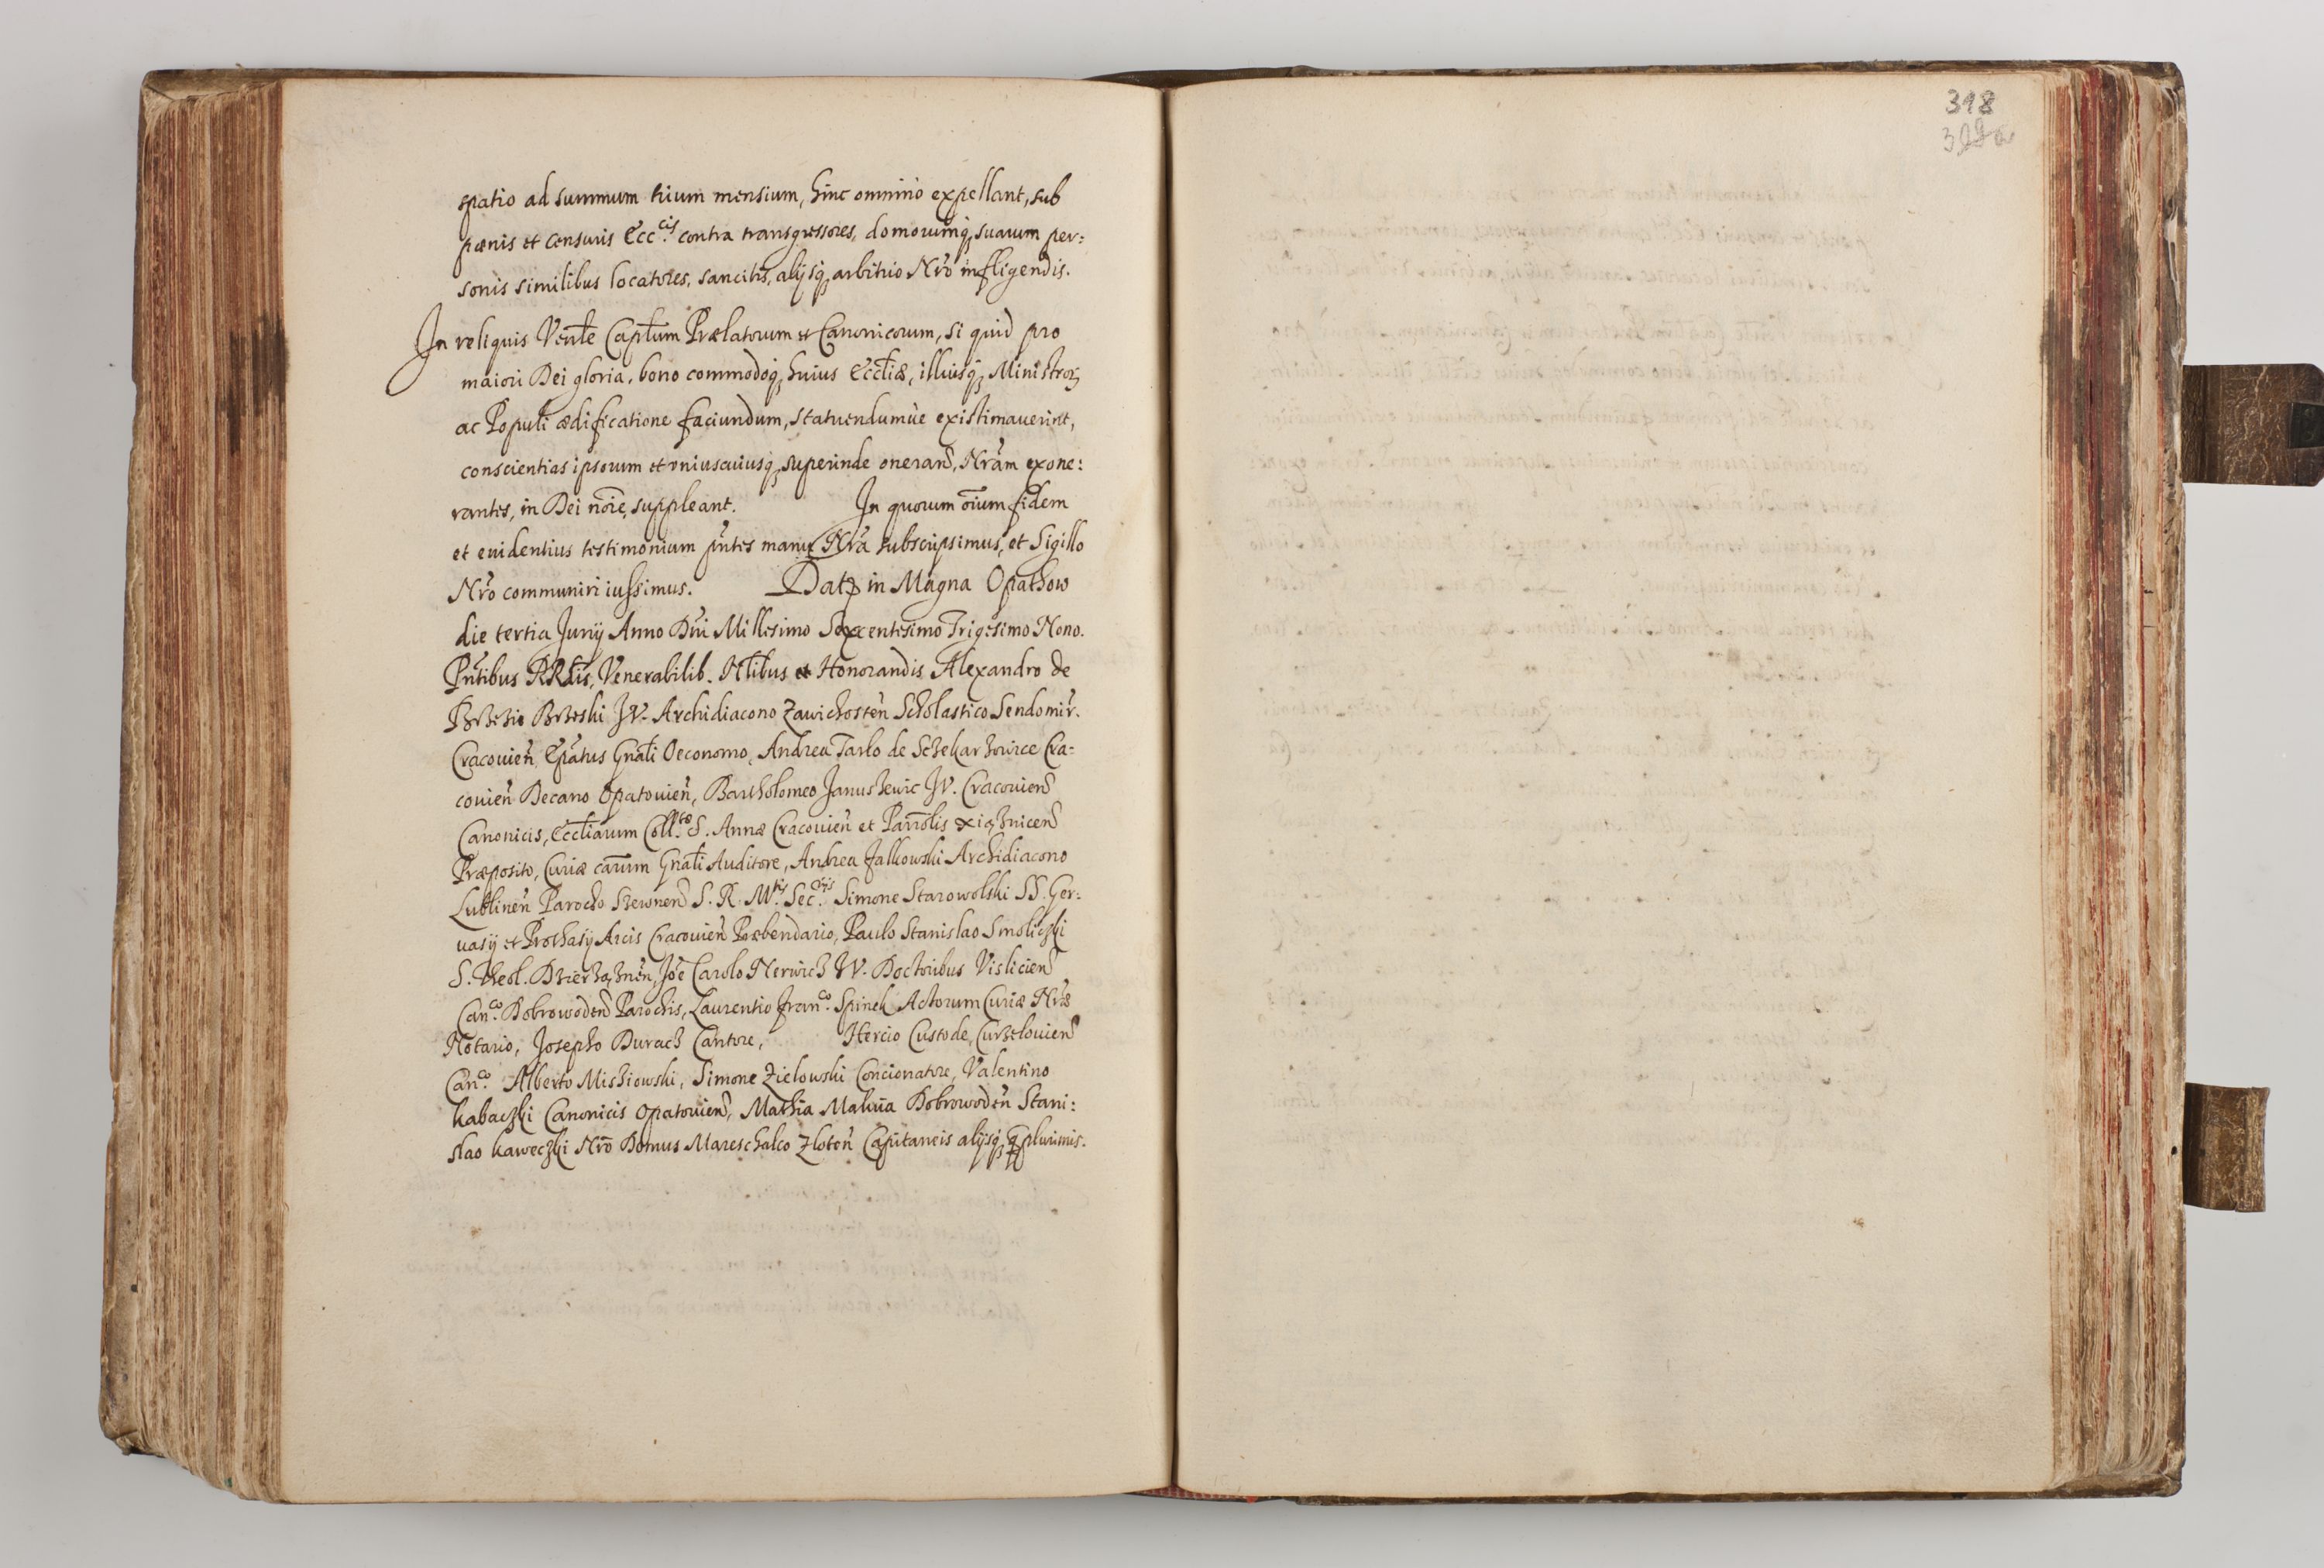 spatio ad summum trium mensium, hinc omnino expellant, sub
pœnis et censuris Ecc.cis contra transgressores, domorumq, suarum per:
sonis similibus locatores, sancitis, alijsq, arbitrio Nro infligendis.
In reliquis Vente Captum Prælatorum et Canonicorum, si quid pro
maiori Dei gloria, bono commodoq, huius Eccliæ, illiusq, Ministror
ac Populi ædificatione faciundum, statuendumue existimauerint,
conscientias ipsorum et vniuscuiusq, superinde oneran, Nram exone:
rantes, in Dei noie, suppleant. In quorum oium fidem
et euidentius testimonium pntes manu Nra subscripsimus, et Sigillo
Nro communiri iussimus. Dat in Magna Opathow
die tertia Junij Anno Dni Millesimo Sexcentesimo Trigesimo Nono.
Pntibus RRdis, Venerabilib. Nlibus et Honorandis Alexandro de
Brzezie Brzeski JV. Archidiacono Zawichosten Scholastico Sendomir.
Cracouien Epatus Gnali Oeconomo, Andrea Tarlo de Sczekarzowice Cra=
couien Decano Opatouien, Bartholomeo Januszewic JV. Cracouien
Canonicis, Eccliarum Coll.tæ S. Annæ Cracouien et Parrolis Xiąznicen
Præposito, Curiæ carum Gnali Auditore, Andrea Jalkowski Archidiacono
Lublinen Parocho S. R. M.tis Sec.rijs Simone Starowolski SS. Ger:
uasij et Prothasij Arcis Cracouien Præbendario, Paulo Stanislao Smoliczki
S. Theol. Joe Carolo Nerwich JV. Doctoribus Vislicien
Can.co Dobrowoden Parochis, Laurentio Fran.co Spinek Actorum Curiæ Nræ
Notario, Josepho Durach Cantore, Hercio Custode, Curzelouien
Can.co Alberto Misziowski, Simone Zielowski Concionatore, Valentino
Kabaczki Canonicis Opatouien, Mathia Makuia Dobrowoden Stani:
slao Kaweczki Nro Domus Mareschalco Zloten Capitaneis alijsq, plurimis.
318